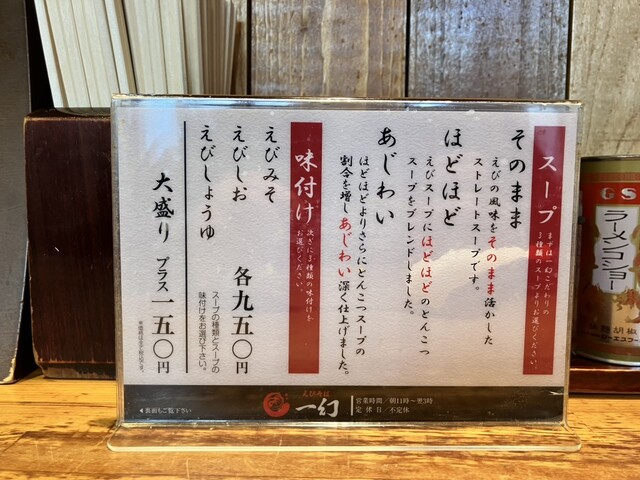 スープ
まずは一幻こだわりの
3種類のスープよりお選び下さい。
そのまま
えびの風味をそのまま活かした
ストレートスープです。
ほどほど
えびスープにほどほどのとんこつ
スープをブレンドしました。
あじわい
ほどほどよりさらにとんこつスープの
割合を増しあじわい深く仕上げました。
味付け
次ぎに3種類の味付けを
お選びください。
えびみそ
えびしお
えびしょうゆ
各九五〇円
スープの種類とスープの
味付けをお選び下さい。
大盛り プラス 一五〇円
◀裏面もご覧下さい
えびそば
一幻
営業時間／朝11時～翌3時
定休日／不定休
GS
ラーメンコショー